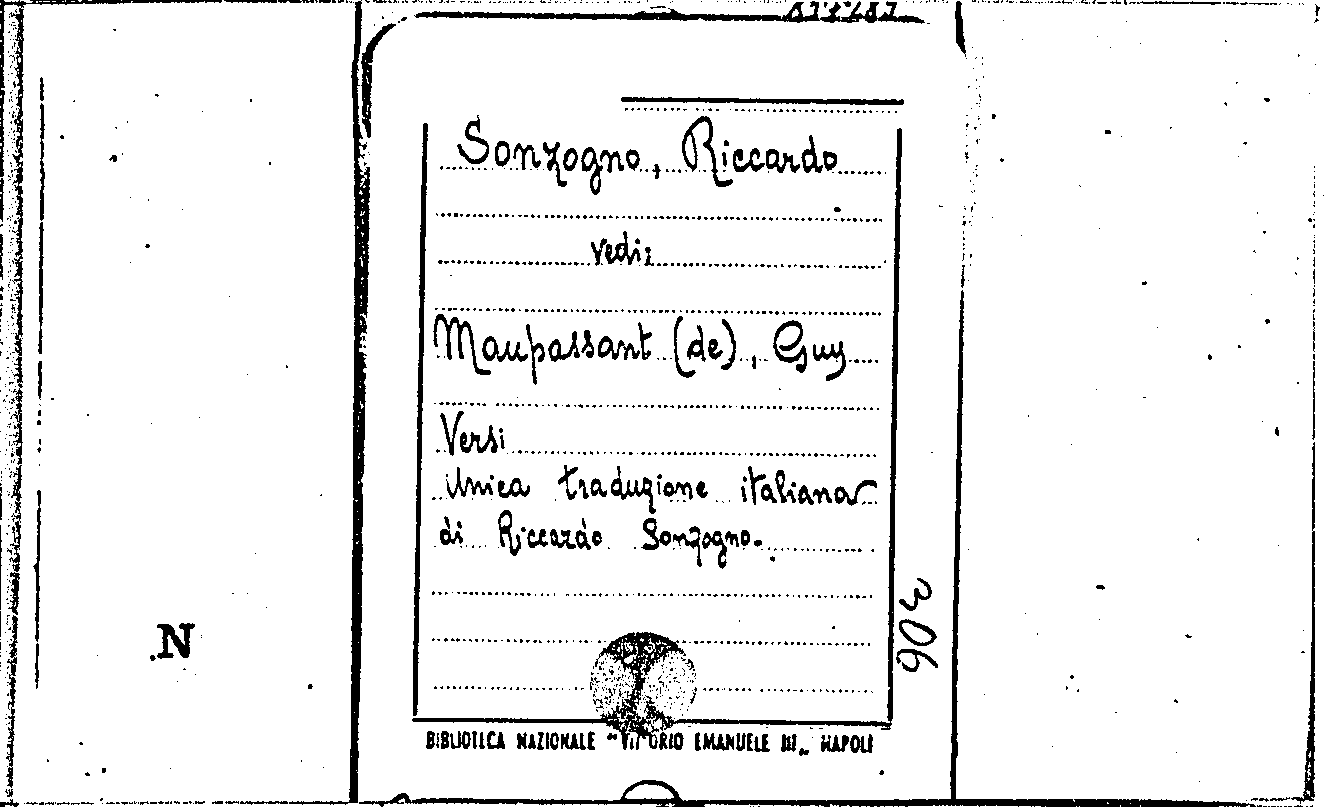 Sonzogno, Riccardo
vedi:
Maupassant (de), Guy
Versi
Unica traduzione italiana
di Riccardo Sonzogno.
306
N
BIBLIOTECA NAZIONALE "VITTORIO EMANUELE III„ NAPOLI